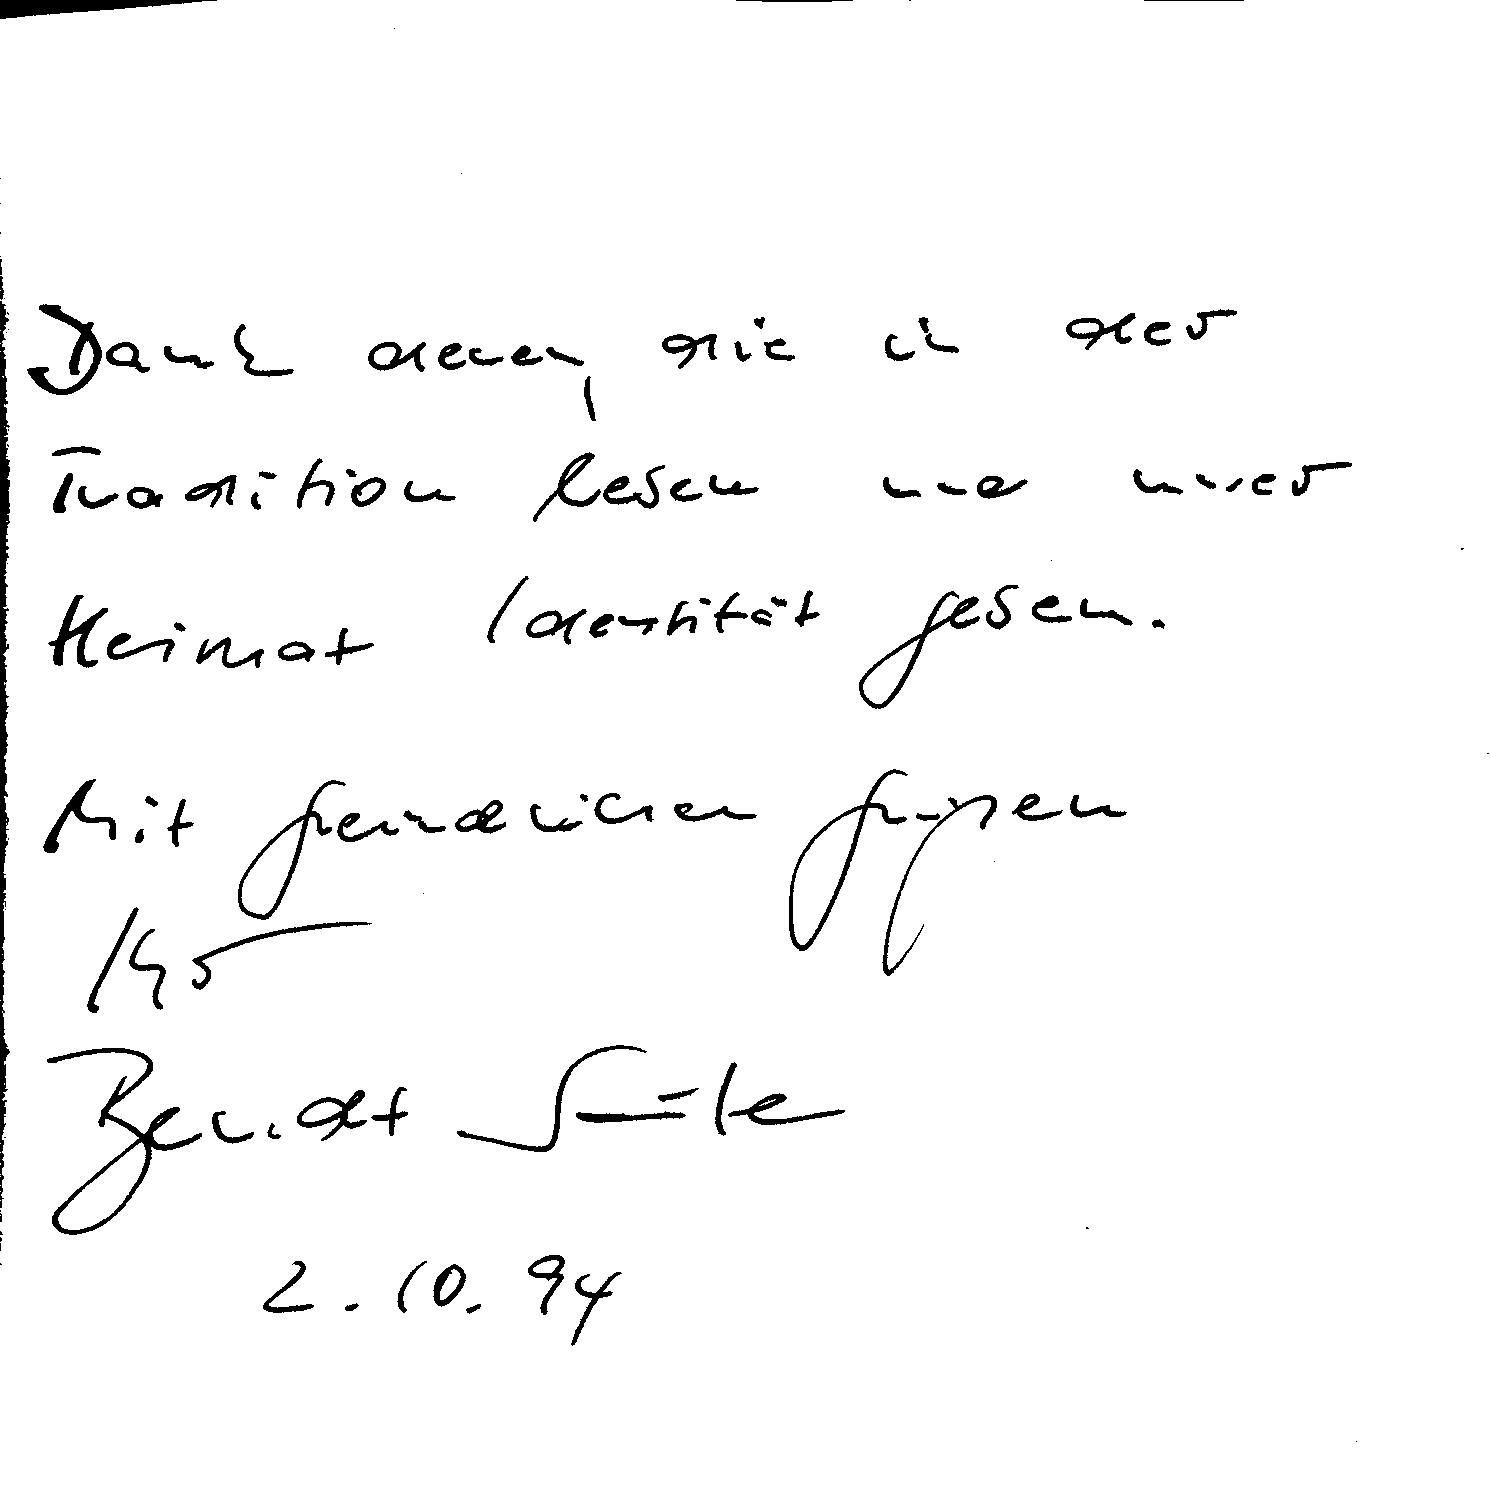 Dank denen, die in der
Tradition leben und unser
Heimat Identität geben.
Mit freundlichen Grüßen
Ihr
2.10.94